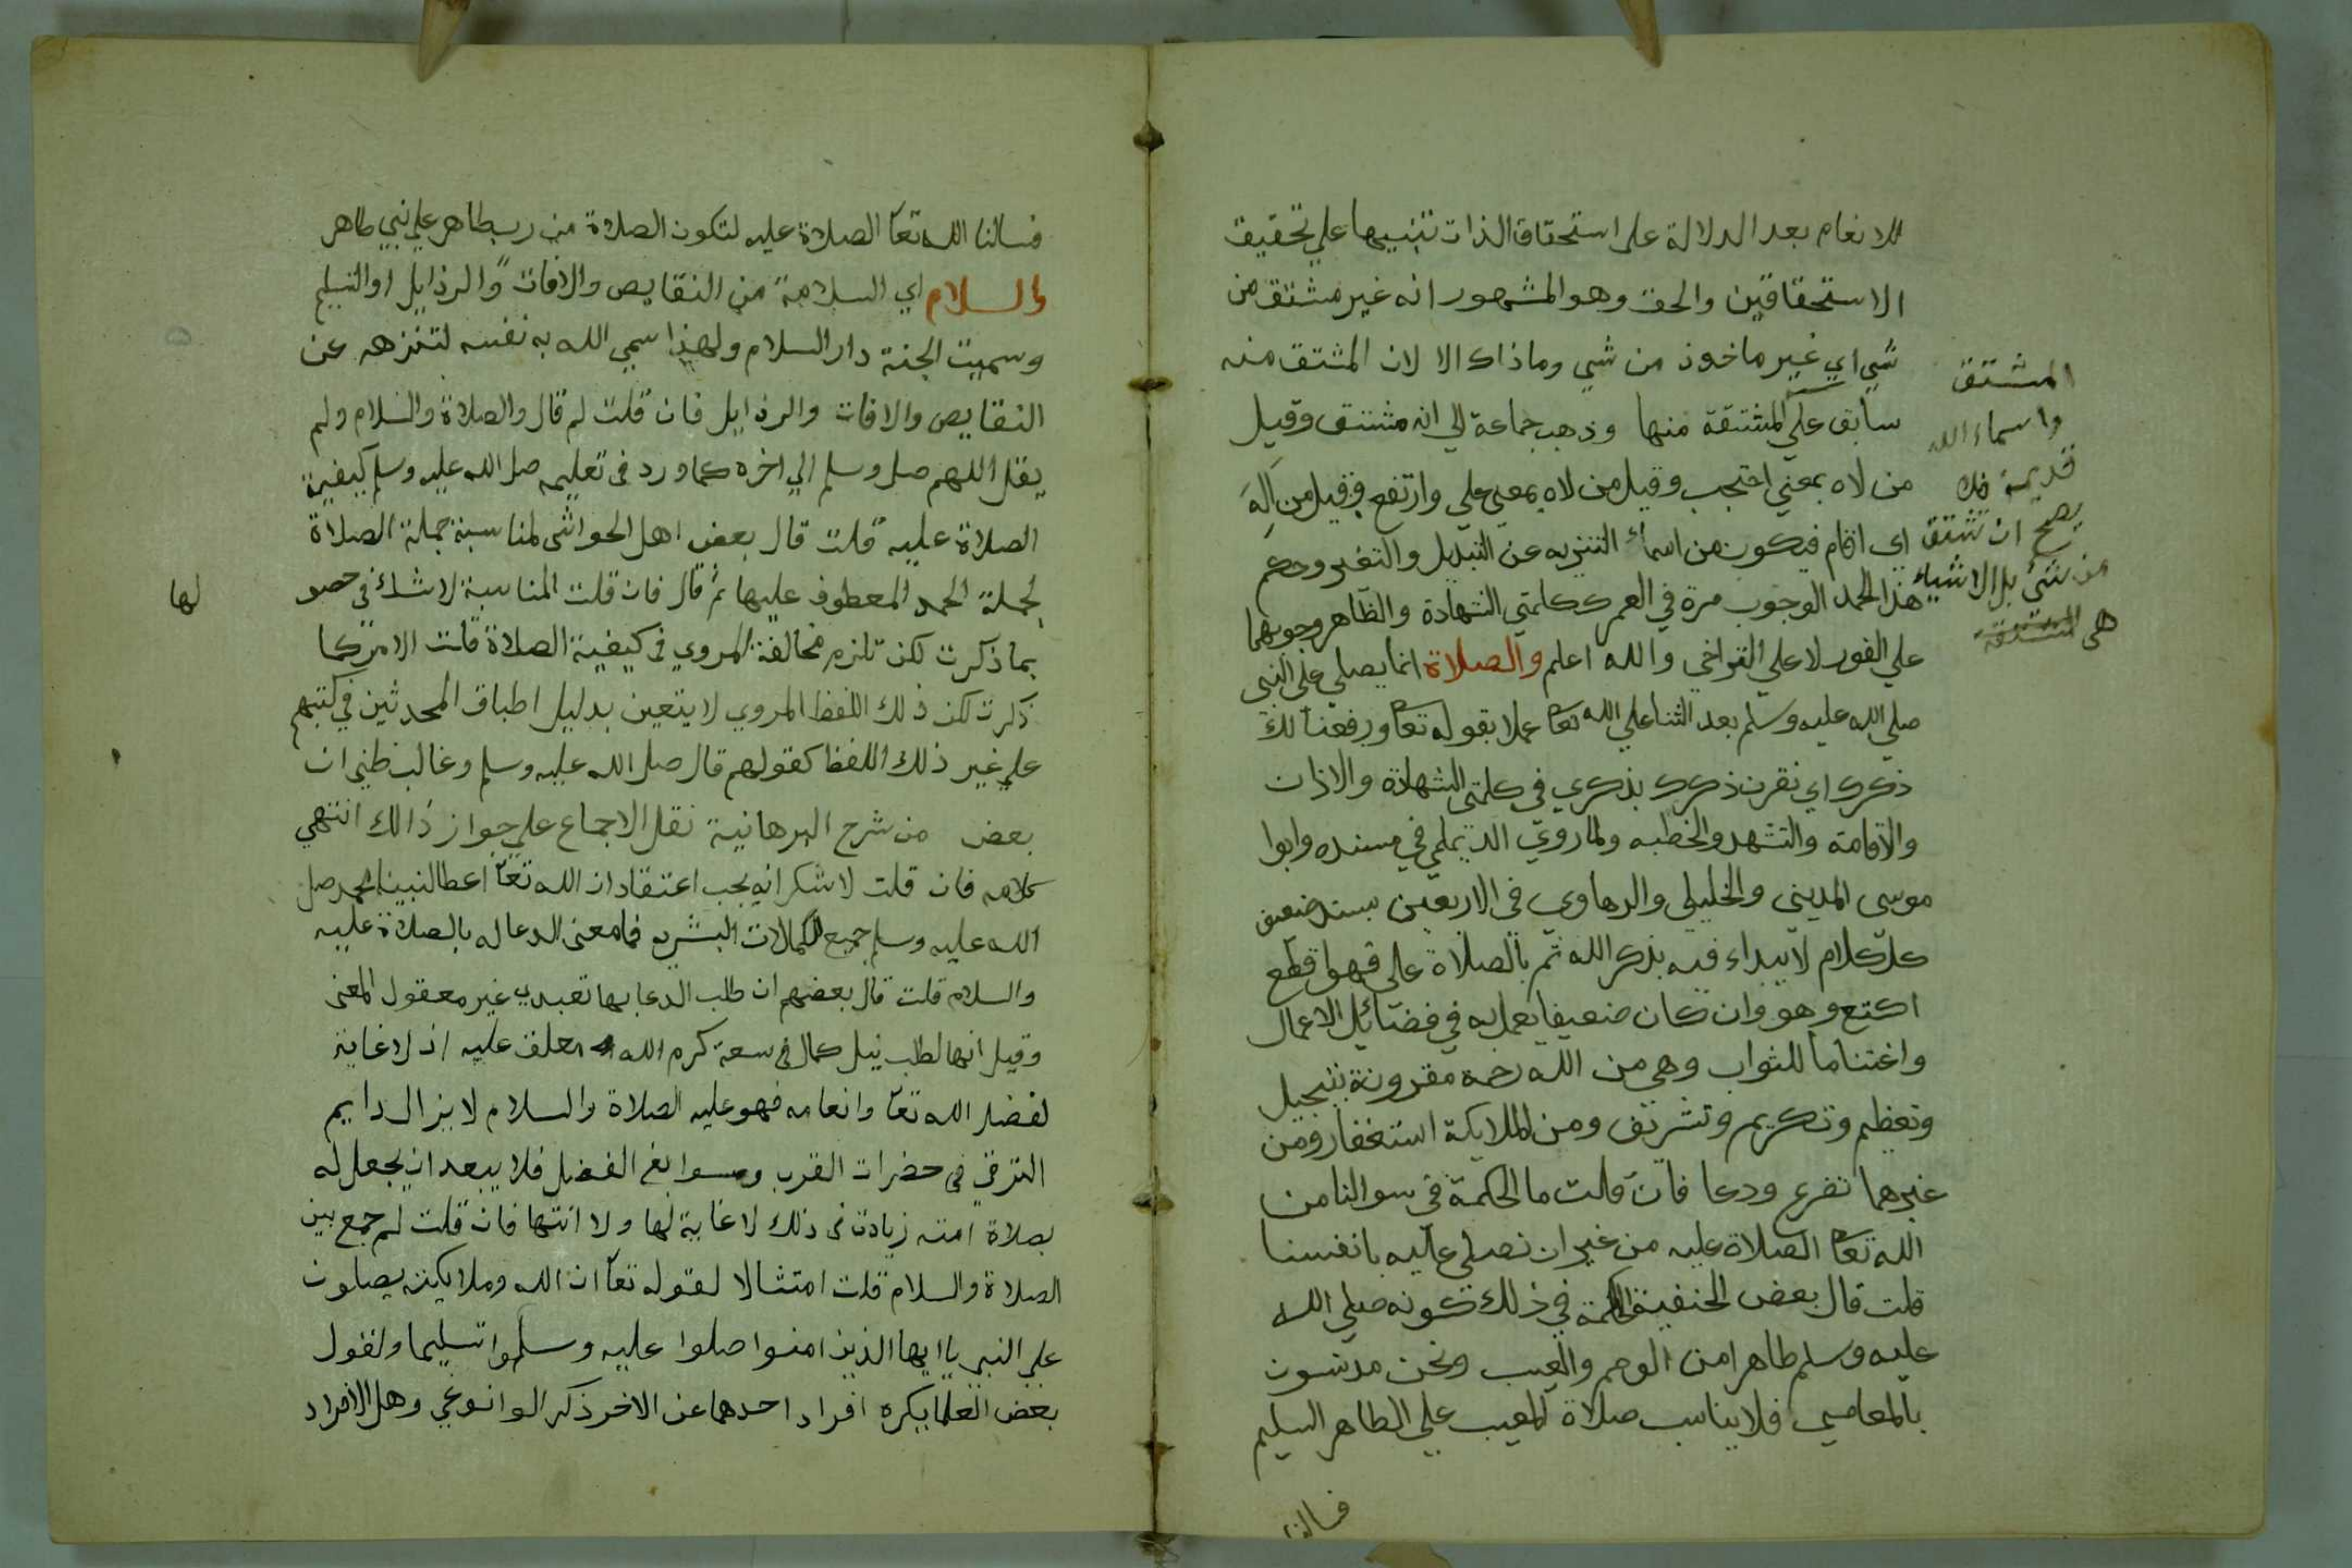 للانعام بعد الدلالة على استحقاق الذات تنبيها علي تحقيق
الاستحقاقين والحق وهو المشهور انه غير مشتق من
شي اي غير ماخوذ من شي وما ذاك الا لان المشتق منه
سابق علي المشتقة منها وذهب جماعة الي انه مشتق وقيل
من لاه بمعني احتجب وقيل من لاه بمعني علي وارتفع وقيل من اله
اي اقام فيكون من اسماء التنزيه عن التبديل والتغير وحكم
هذا الحمد الوجوب مرة في العمر ككلمتي الشهادة والظاهر وجوبهما
علي الفور لا علي التراخي والله اعلم والصلاة انما يصلي علي النبي
صلي الله عليه وسلم بعد الثنا علي الله تعا عملا بقوله تعا ورفعنا لك
ذكرك اي نقرن ذكرك بذكري في كلمتي الشهادة والاذان
والاقامة والتشهد والخطبه ولما روي الديلمي في مسنده وابوا
موسى المديني والخليلي والرهاوي في الاربعين بسند ضعيف
كل كلام لا يبداء فيه بذكر الله ثم بالصلاة علي فهو اقطع
اكتع وهو وان كان ضعيفا يعمل به في فضائل الاعمال
واغتناما للثواب وهي من الله رحمة مقرونة بتبجيل
وتعظيم وتكريم وتشريف ومن الملايكة استغفار ومن
غيرهما تضرع ودعا فان قلت ما الحكمة في سوالنا من
الله تعا الصلاة عليه من غير ان نصلي عليه بانفسنا
قلت قال بعض الحنفية الحكمة في ذلك كونه صلي الله
عليه وسلم طاهرا من الوصم والعيب ونحن مدنسون
بالمعاصي فلا يناسب صلاة المعيب علي الطاهر السليم
فسالنا
المشتق
واسماء الله
قديمة فلا
يصح ان تشتق
من شئ بل الاشياء
هى المشتقة
فسالنا الله تعا الصلاة عليه لتكون الصلاة من رب طاهر علي نبي طاهر
والسلام اي السلامة من النقايص والافات والرذايل او التسليم
وسميت الجنة دار السلام ولهذا سمي الله به نفسه لتنزهه عن
النقايص والافات والرذايل فان قلت لم قال والصلاة والسلام ولم
يقل اللهم صل وسلم الي اخره كما ورد في تعليمه صل الله عليه وسلم كيفية
الصلاة عليه قلت قال بعض اهل الحواشى لمناسبة جملة الصلاة
لجملة الحمد المعطوف عليها ثم قال فان قلت المناسبة لا شك في حصو
لها
بما ذكرت لكن تلزم مخالفة المروي في كيفية الصلاة قلت الامر كما
ذكرت لكن ذلك اللفظ المروي لا يتعين بدليل اطباق المحدثين في كتبهم
علي غير ذلك اللفظ كقولهم قال صل الله عليه وسلم وغالب ظني ان
بعض من شرح البرهانية نقل الاجماع علي جواز ذالك انتهي
كلامه فان قلت لا شك انه يجب اعتقاد ان الله تعا اعطا لنبينا محمد صل
الله عليه وسلم جميع الكمالات البشريه فما معنى الدعا له بالصلاة عليه
والسلام قلت قال بعضهم ان طلب الدعا بها تعبدي غير معقول المعنى
وقيل انها لطلب نيل كمال في سعة كرم الله معلق عليه اذ لا غاية
لفضل الله تعا وانعامه فهو عليه الصلاة والسلام لا يزال دايم
الترقي في حضرات القرب وسوابغ الفضل فلا يبعد ان يجعل له
بصلاة امته زيادة في ذلك لا غاية لها ولا انتها فان قلت لم جمع بين
الصلاة والسلام قلت امتثالا لقوله تعا ان الله وملايكته يصلون
على النبي يا ايها الذين امنوا صلوا عليه وسلموا تسليما ولقول
بعض العلما يكره افراد احدهما عن الاخر ذكر الوانوغي وهل الافراد